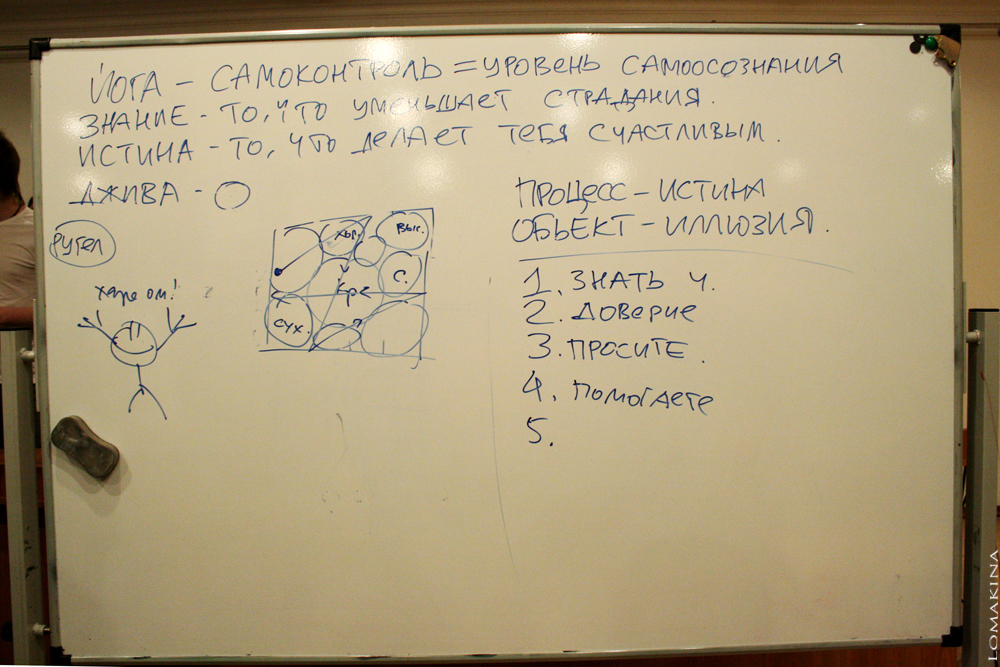 ЙОГА – САМОКОНТРОЛЬ = УРОВЕНЬ САМООСОЗНАНИЯ
ЗНАНИЕ - ТО, ЧТО УМЕНЬШАЕТ СТРАДАНИЯ.
ИСТИНА - ТО, ЧТО ДЕЛАЕТ ТЕБЯ СЧАСТЛИВЫМ.
ДЖИВА -
ПРОЦЕСС – ИСТИНА
ОБЪЕКТ – ИЛЛЮЗИЯ.
харе ом!
выс.
С.
сух.
1. ЗНАТЬ Ч.
2. ДОВЕРИЕ
3. ПРОСИТЕ.
4. ПОМОГАЕТЕ
5.
LOMAKINA